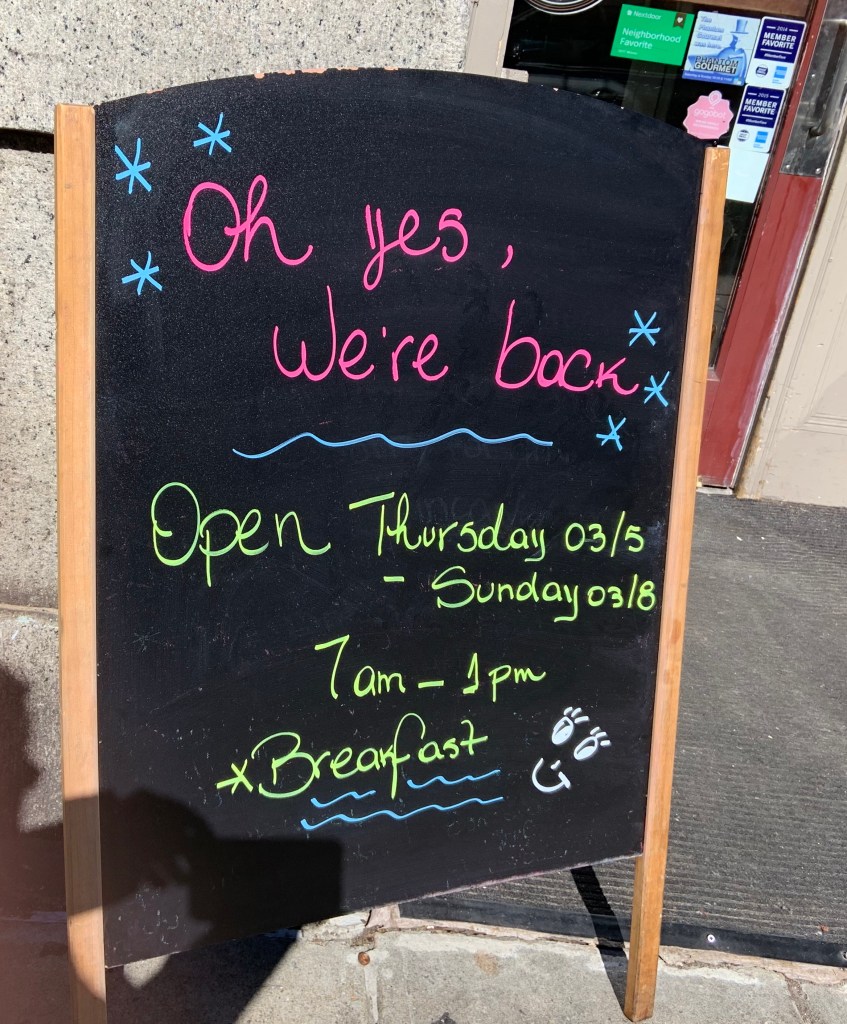 Oh yes,
We're back
Open Thursday 03/5
- Sunday 03/8
7am - 1pm
*Breakfast
Nextdoor
Neighborhood
Favorite
PHANTOM
GOURMET
MEMBER
FAVORITE
MEMBER
FAVORITE